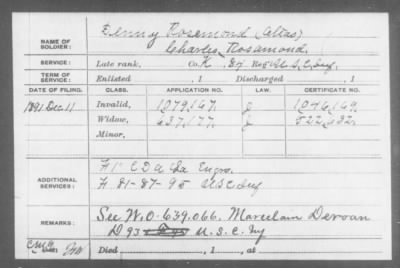 NAME OF SOLDIER: Rosemond (Alias)
Charles Rosamond.
SERVICE: Late rank, Co. K, 84 Reg't U.S.C. Inf.
TERM OF SERVICE: Enlisted , 1 Discharged , 1
DATE OF FILING. CLASS. APPLICATION NO. LAW. CERTIFICATE NO.
1891 Dec. 11 Invalid, 1,079,167. J 1,076,169.
Widow, 637,177. J 522,632.
Minor,
ADDITIONAL SERVICES: H 1" C D A La Engrs.
H 81-87-95 U S C Inf
REMARKS: See W.O. 639,066. Marcelain Devoan
D 93 U.S.C. Inf
Died , 1 , at